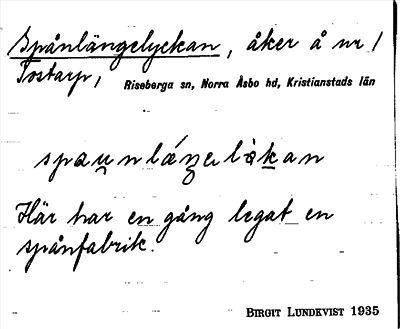 Spånlängelyckan, åker å nr 1
Tostarp, Riseberga sn, Norra Åsbo hd, Kristianstads län
Här har en gång legat en
spånfabrik.
BIRGIT LUNDKVIST 1935